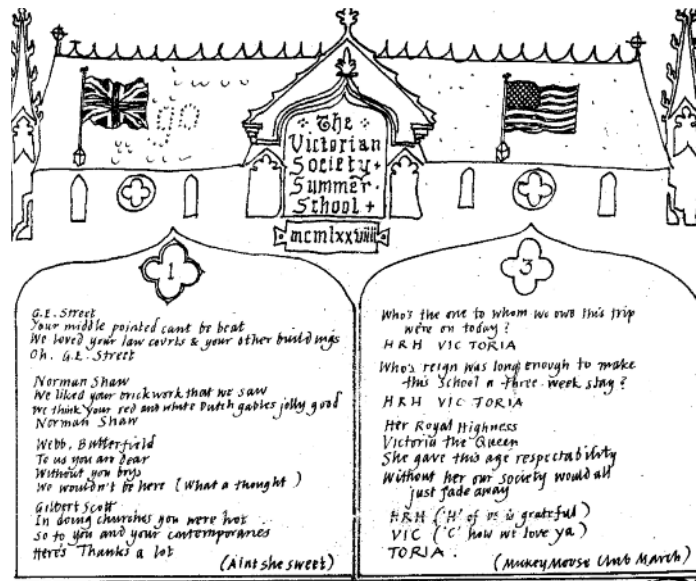 The
Victorian
Society
Summer
School
mcmlxxviiii
1
G.E. Street
Your middle pointed cant be beat
We loved your law courts & your other buildings
Oh, G.E. Street
Norman Shaw
We liked your brickwork that we saw
We think your red and white Dutch gables jolly good
Norman Shaw
Webb, Butterfield
To us you are dear
Without you boys
We wouldn't be here (What a thought)
Gilbert Scott
In doing churches you were hot
So to you and your contemporaries
Here's Thanks a lot
(Aint she sweet)
3
Who's the one to whom we owe this trip
we're on today?
HRH VIC TORIA
Who's reign was long enough to make
this School a three-week stay?
HRH VIC TORIA
Her Royal Highness
Victoria the Queen
She gave this age respectability
Without her our society would all
just fade away
HRH ('H' of us is grateful)
VIC ('C' how we love ya)
TORIA.
(Mickey Mouse Club March)